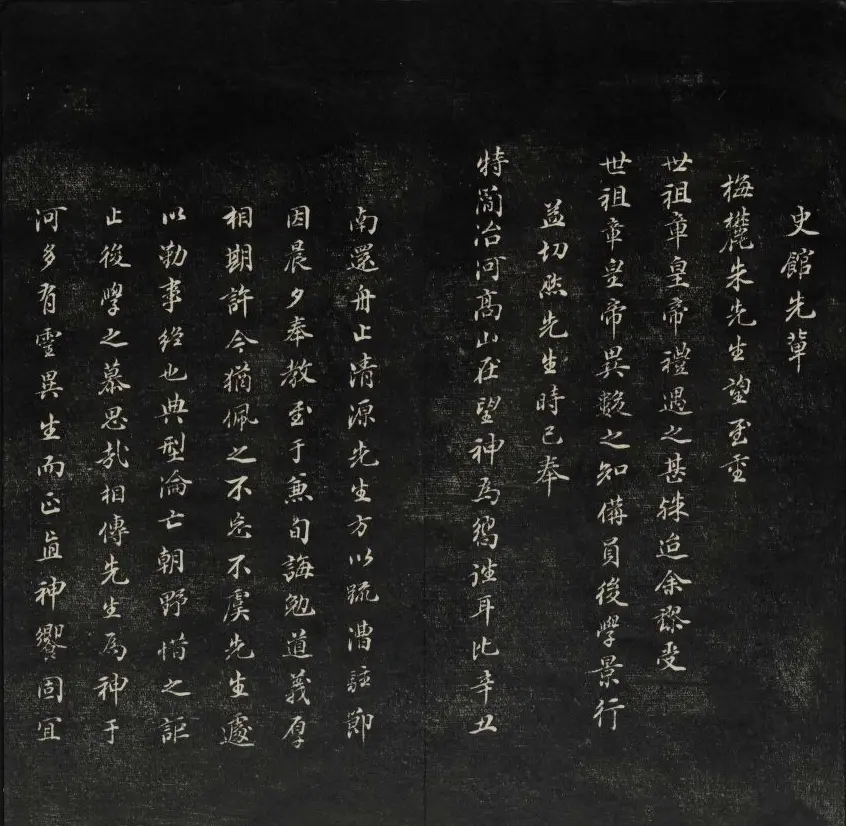 史館先輩
梅麓朱先生望至重
世祖章皇帝禮遇之甚殊迨余謬受
世祖章皇帝異數之知備員後學景行
益切然先生時已奉
特簡治河高山在望神為嚮往耳比辛丑
南還舟止清源先生方以疏漕駐節
因晨夕奉教至于兼旬誨勉道義厚
相期許今猶佩之不忘不虞先生遽
以勤事終也典型淪亡朝野惜之詎
止後學之慕思哉相傳先生為神于
河多有靈異生而正直神饗固宜